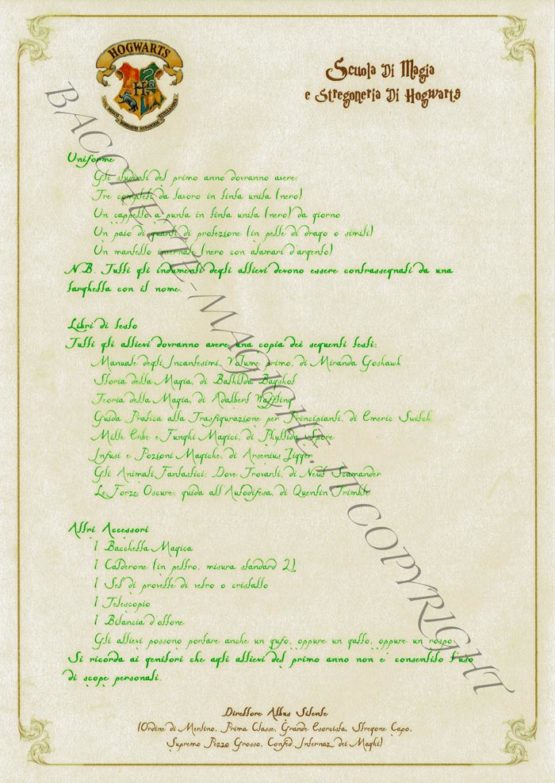 HOGWARTS
Scuola Di Magia
e Stregoneria Di Hogwarts
Uniforme
Gli studenti del primo anno dovranno avere:
Tre completi da lavoro in tinta unita (nero)
Un cappello a punta in tinta unita (nero) da giorno
Un paio di guanti di protezione (in pelle di drago o simili)
Un mantello invernale (nero con alamari d'argento)
N.B. Tutti gli indumenti degli allievi devono essere contrassegnati da una
targhetta con il nome.
Libri di testo
Tutti gli allievi dovranno avere una copia dei seguenti testi:
Manuale degli Incantesimi, Volume primo, di Miranda Goshawk
Storia della Magia, di Bathilda Bagshot
Teoria della Magia, di Adalbert Waffling
Guida Pratica alla Trasfigurazione per Principianti, di Emeric Switch
Mille Erbe e Funghi Magici, di Phyllida Spore
Infusi e Pozioni Magiche, di Arsenius Jigger
Gli Animali Fantastici: Dove Trovarli, di Newt Scamander
Le Forze Oscure: guida all'Autodifesa, di Quentin Trimble
Altri Accessori
1 Bacchetta Magica
1 Calderone (in peltro, misura standard 2)
1 Set di provette di vetro o cristallo
1 Telescopio
1 Bilancia d'ottone
Gli allievi possono portare anche un gufo, oppure un gatto, oppure un rospo.
Si ricorda ai genitori che agli allievi del primo anno non e' consentito l'uso
di scope personali.
Direttore Albus Silente
(Ordine di Merlino, Prima Classe, Grande Esorcista, Stregone Capo,
Supremo Pezzo Grosso, Confed. Internaz. dei Maghi)
BACCHETTE-MAGICHE.IT COPYRIGHT